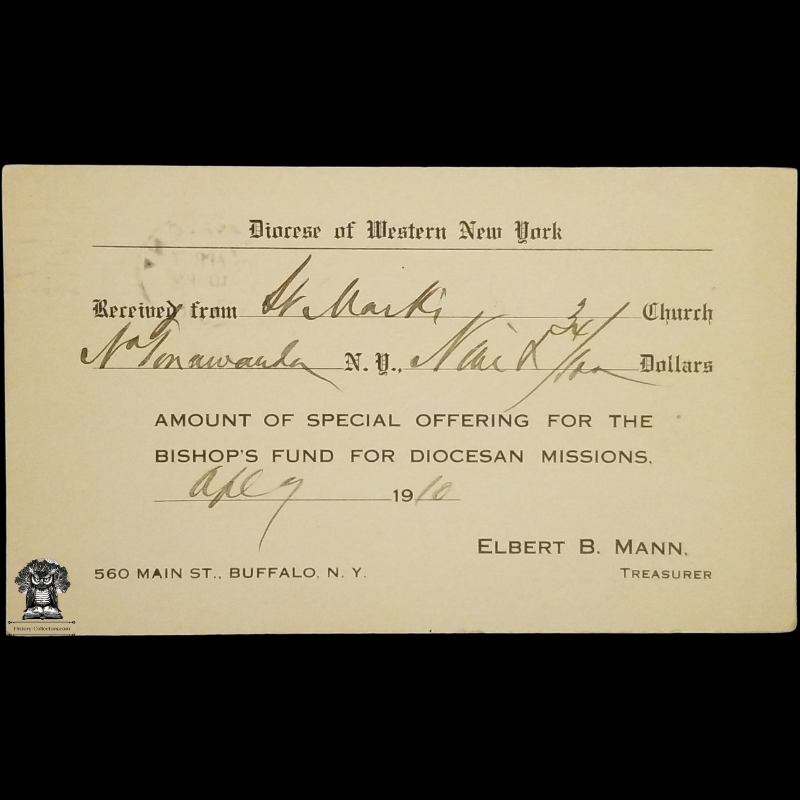 Diocese of Western New York
Received from St Marks Church
No Tonawanda N. Y., Nine & 34/100 Dollars
AMOUNT OF SPECIAL OFFERING FOR THE
BISHOP'S FUND FOR DIOCESAN MISSIONS.
Apl 9 1910
ELBERT B. MANN,
560 MAIN ST., BUFFALO, N. Y. TREASURER
History-Collectors.com